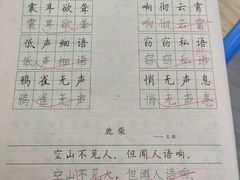 震耳欲聋 响彻云霄
震耳欲聋 响彻云霄
低声细语 窃窃私语
低声细语 窃窃私语
鸦雀无声 悄无声息
鸦雀无声 悄无声息
鹿柴
——王维
空山不见人，但闻人语响。
空山不见人，但闻人语响